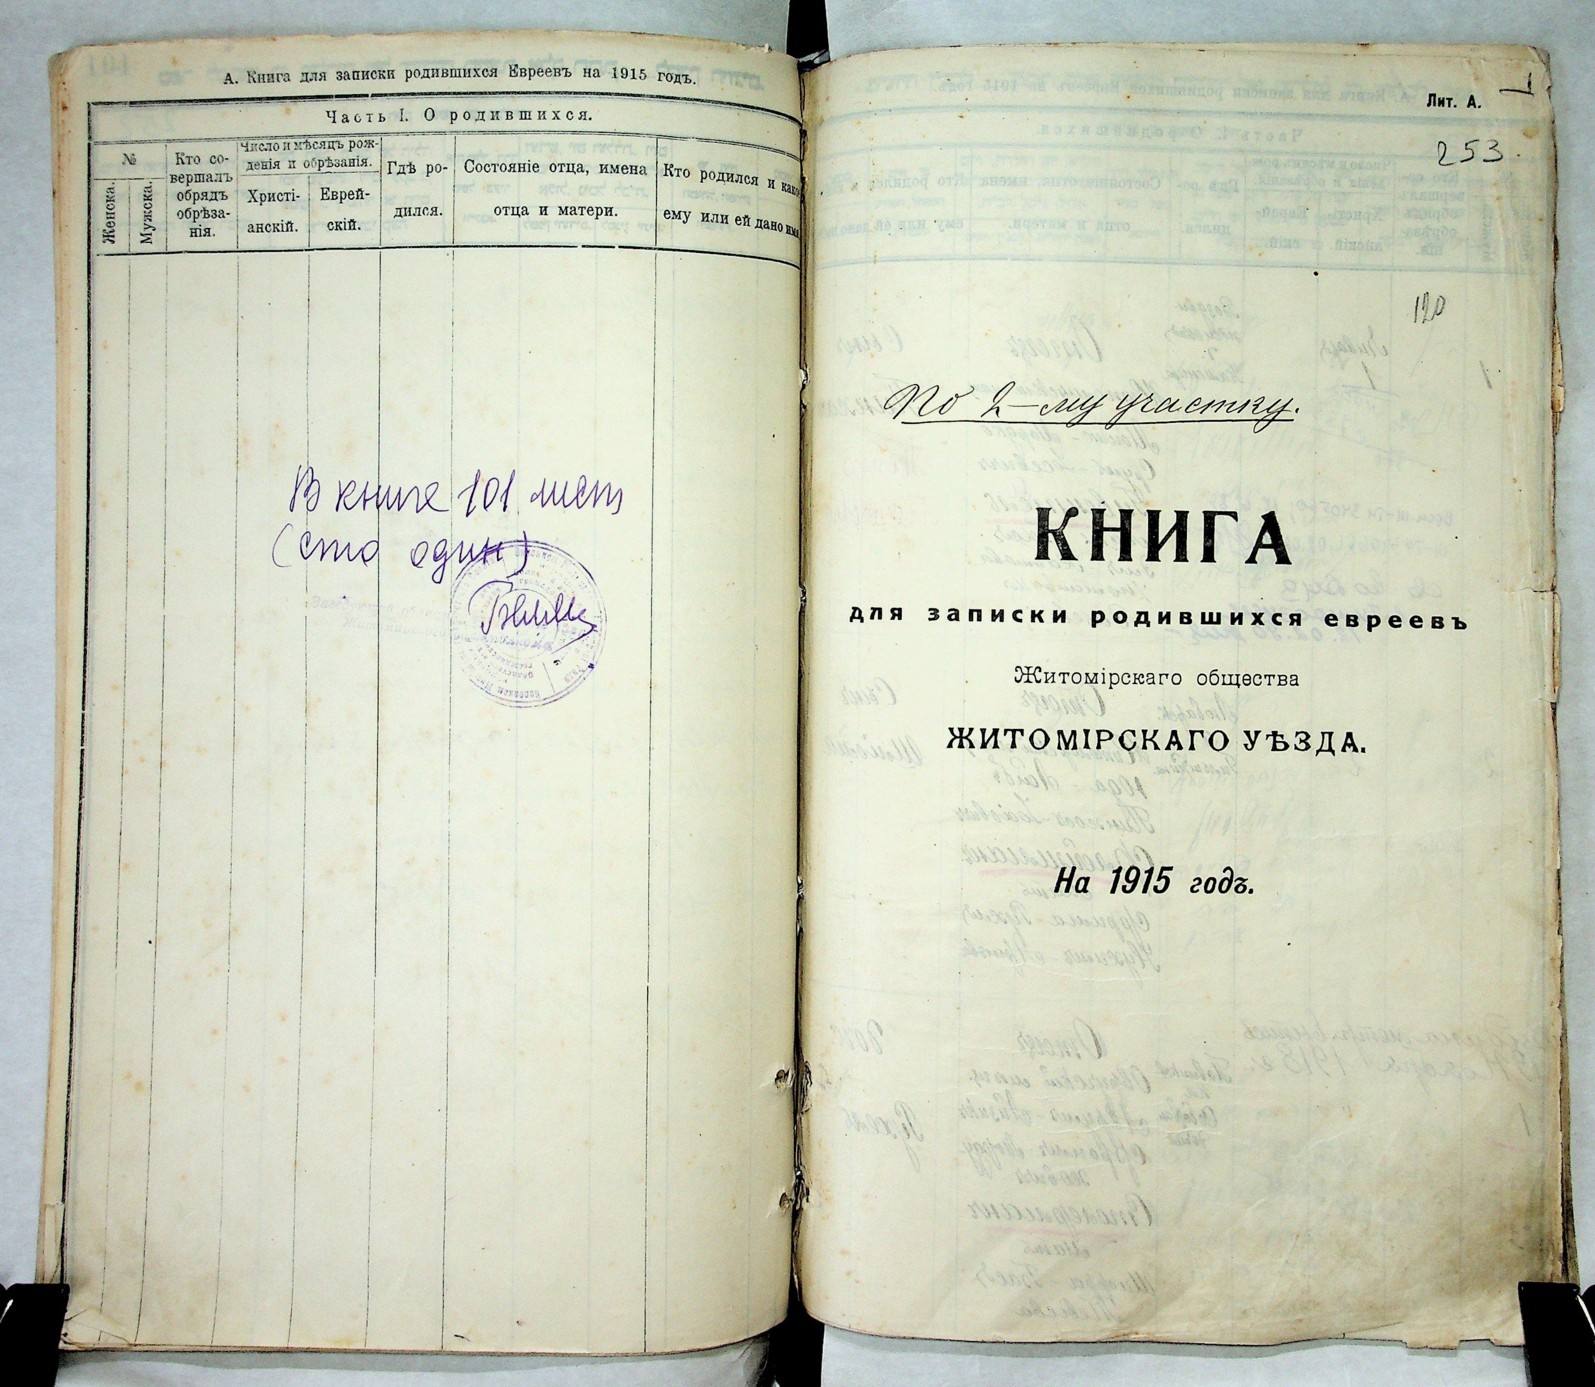 А. Книга для записки родившихся Евреевъ на 1915 годъ.
Часть I. О родившихся.
№
Женска.
Мужска.
Кто со-
вершалъ
обрядъ
обрѣза-
нія.
Число и мѣсяцъ рож-
денія и обрѣзанія.
Христі-
анскій.
Еврей-
скій.
Гдѣ ро-
дился.
Состояніе отца, имена
отца и матери.
Кто родился и како
ему или ей дано имя
В книге 101 лист
(сто один)
1
Лит. А.
253.
120
По 2-му участку.
КНИГА
для записки родившихся евреевъ
Житомірскаго общества
ЖИТОМІРСКАГО УѢЗДА.
На 1915 годъ.